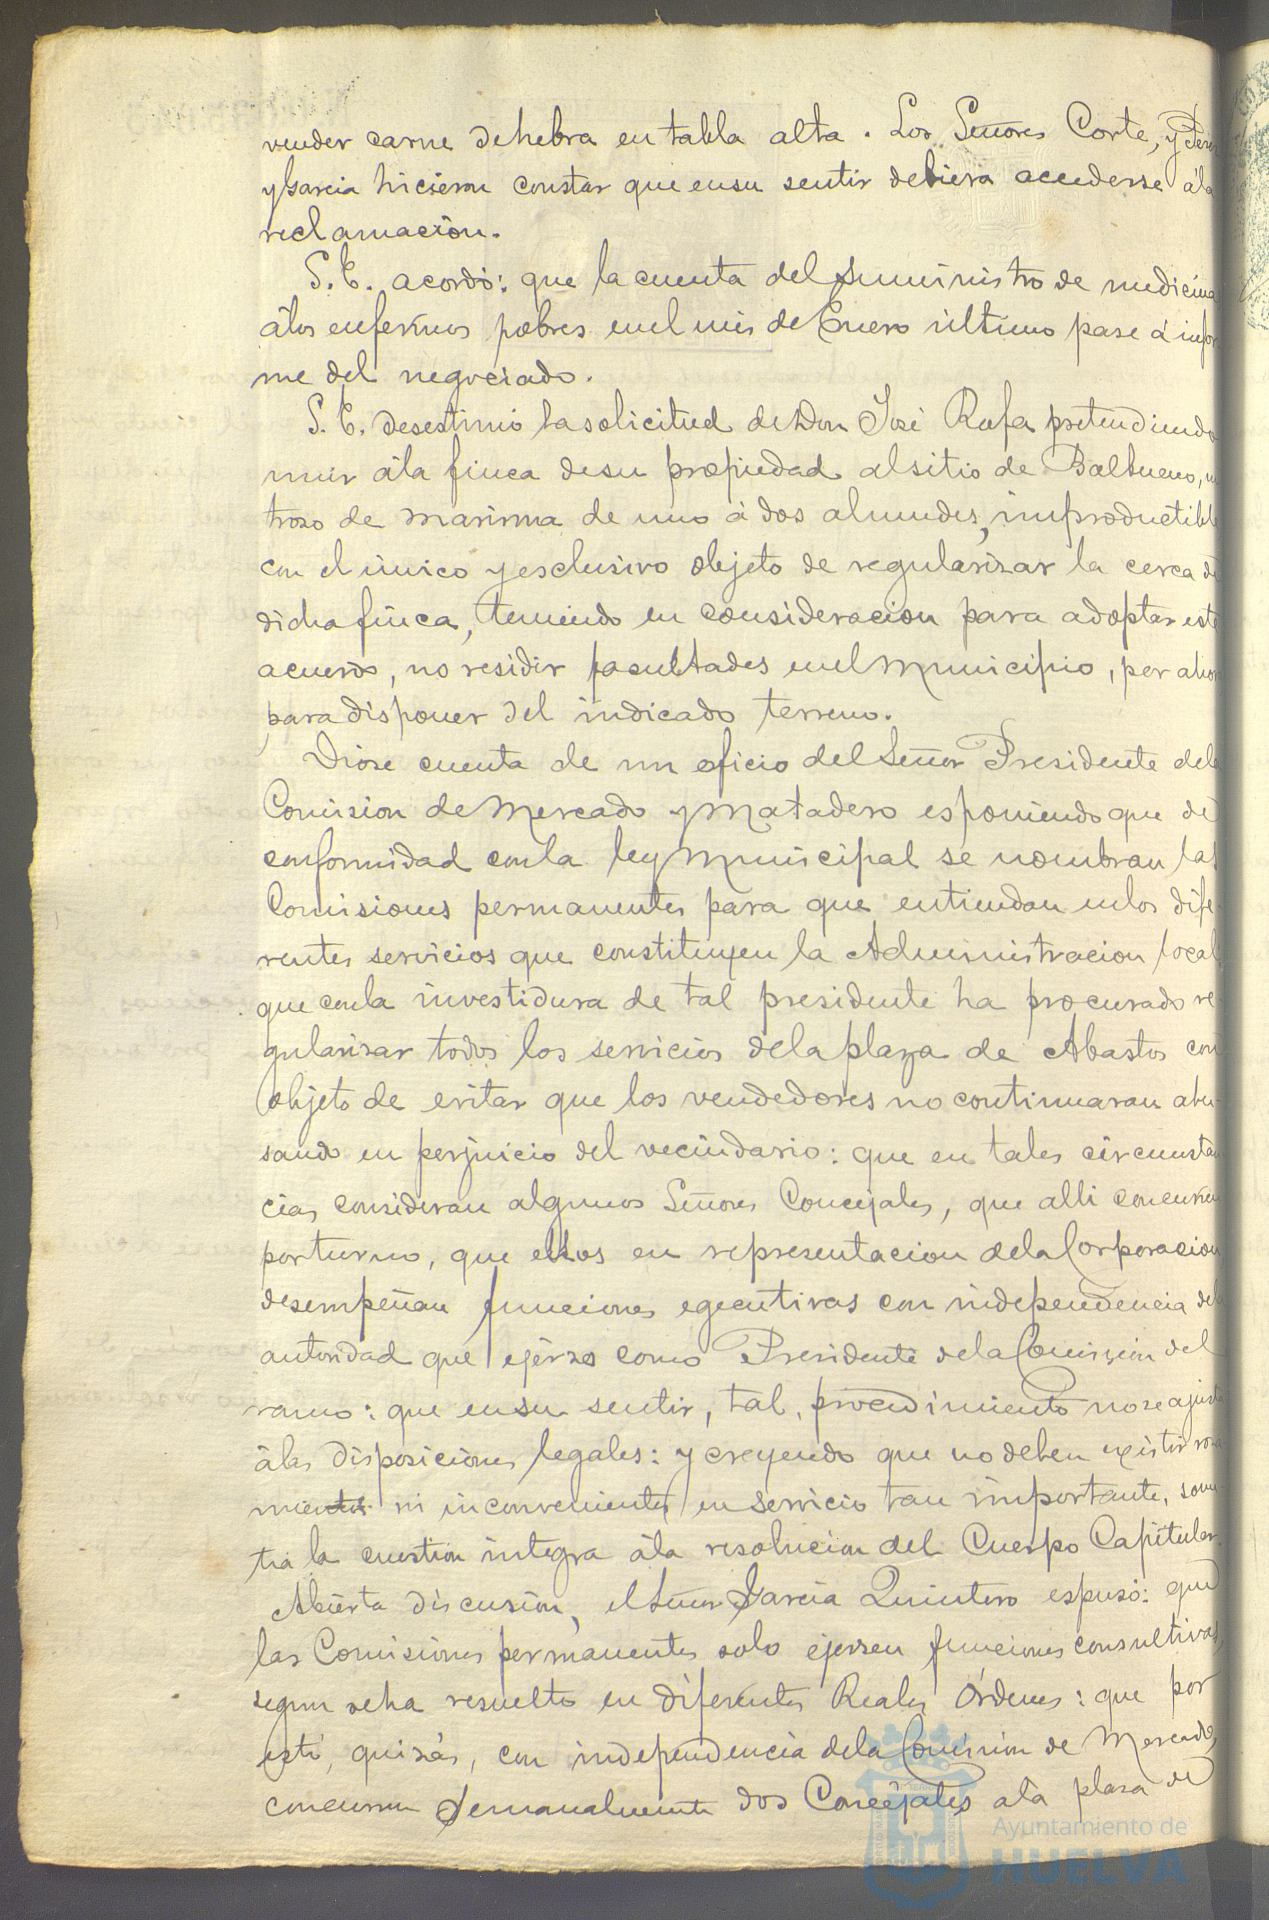 vender carne de hebra en tabla alta. Los Señores Corte, y
y Garcia hicieron constar que en su sentir debiera accederse á la
reclamacion.
S. E. acordó: que la cuenta del suministro de medicina
á los enfermos pobres en el mes de Enero último pase á infor
me del negociado.
S. E. desestimó la solicitud de Don José Rufa pretendiendo
unir á la finca de su propiedad al sitio de Balbueno, un
trozo de marisma de uno á dos almudes, improductible
con el único y esclusivo objeto de regularizar la cerca de
dicha finca, teniendo en consideracion para adoptar este
acuerdo, no residir facultades en el Municipio, por ahora
para disponer del indicado terreno.
Diose cuenta de un oficio del Señor Presidente de la
Comision de Mercado y Matadero esponiendo que de
conformidad con la ley Municipal se nombran las
Comisiones permanentes para que entiendan en los dife-
rentes servicios que constituyen la Administracion local
que con la investidura de tal presidente ha procurado re-
gularizar todos los servicios de la plaza de Abastos con
objeto de evitar que los vendedores no continuaran abu-
sando en perjuicio del vecindario: que en tales circunstan
cias consideran algunos Señores Concejales, que alli concurren
por turno, que ellos en representacion de la Corporacion
desempeñan funciones egecutivas con independencia de la
autoridad que ejerzo como Presidente de la Comision del
ramo: que en su sentir, tal procedimiento no se ajusta
á las disposiciones legales: y creyendo que no deben existir roza
mientos ni inconvenientes en servicio tan importante, some
tia la cuestion integra á la resolucion del Cuerpo Capitular.
Abierta discusion, el Señor Garcia Quintero espuso: que
las Comisiones permanentes solo ejersen funciones consultivas,
segun se ha resuelto en diferentes Reales Órdenes: que por
esto, quizás, con independencia de la Comision de Mercado,
concurren semanalmente dos Concejales á la plaza de
Ayuntamiento de
HUELVA